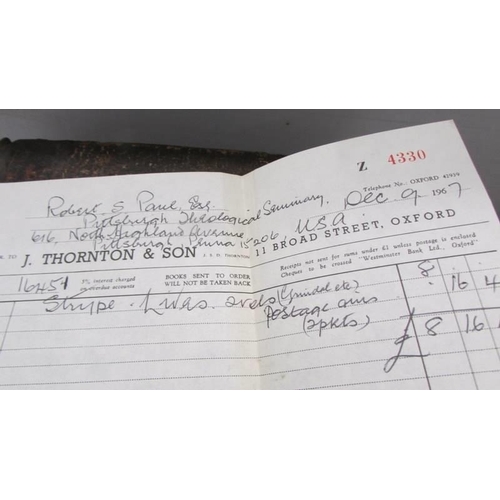 Z 4330
Telephone No. OXFORD 42939
Dec. 9 1967
Robert S Paul, Esq.
Pittsburgh Theological Seminary,
616, North Highland Avenue
Pittsburgh, Penna 15206, USA
TO J. THORNTON & SON J. S. H. THORNTON 11 BROAD STREET, OXFORD
5% interest charged on overdue accounts
BOOKS SENT TO ORDER WILL NOT BE TAKEN BACK
Receipts not sent for sums under £2 unless postage is enclosed
Cheques to be crossed "Westminster Bank Ltd., Oxford"
16451
Strype. 8 16 4
Postage
(2pkts)
£ 8 16